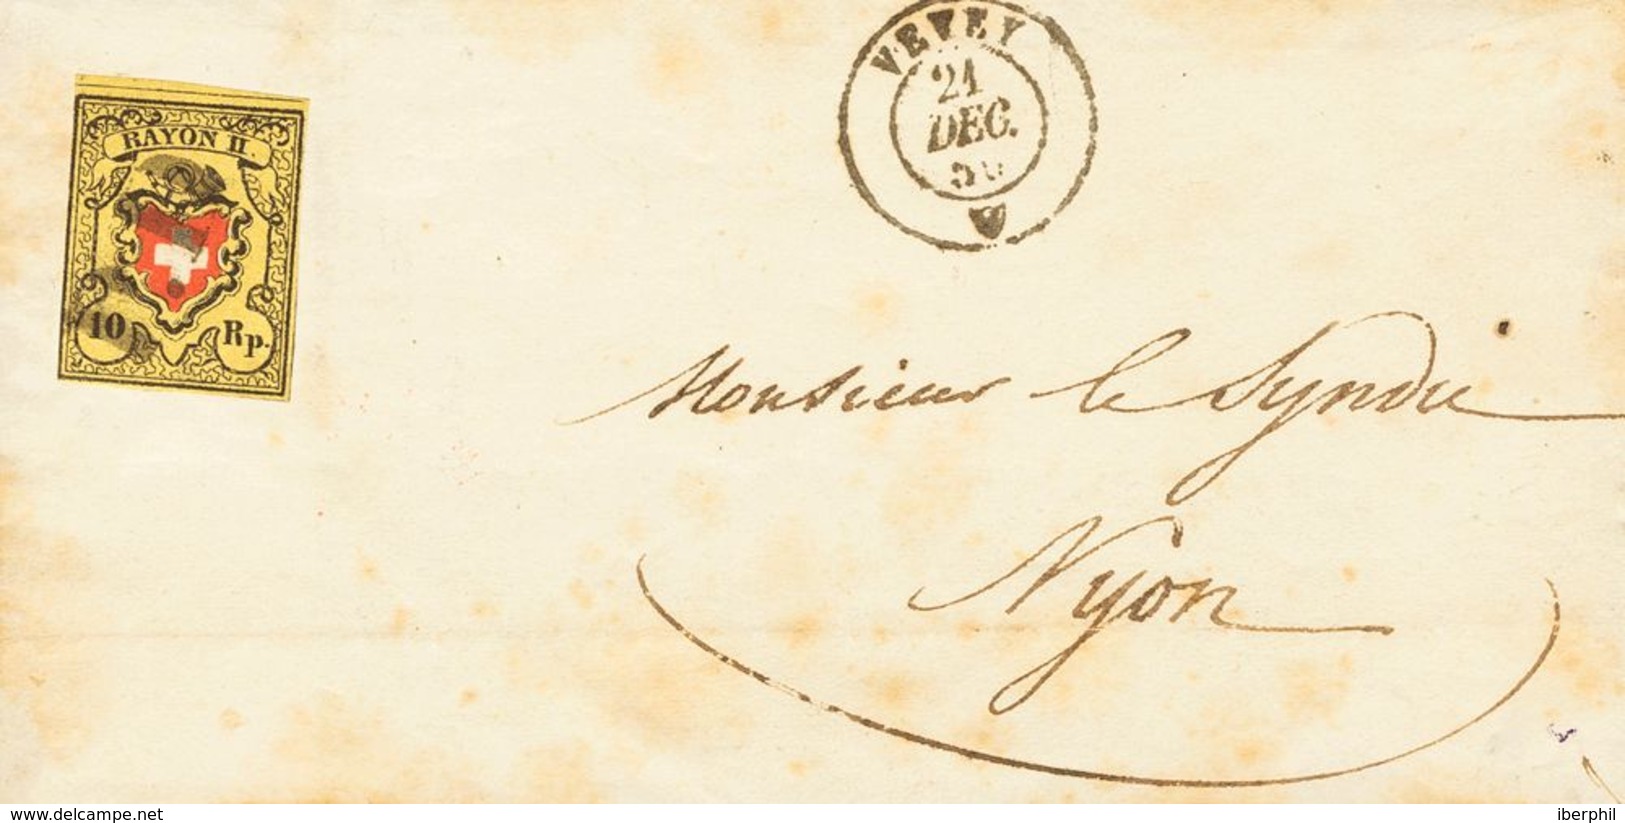 VEVEY
21
DEC.
RAYON II.
10 Rp.
Monsieur le Syndic
Nyon
www.delcampe.net
iberphil